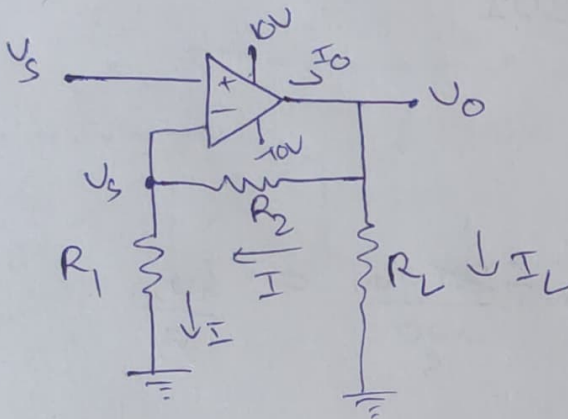 10V
Vs
Io
+
Vo
-
-10V
Vs
R2
I
R1
I
RL
IL